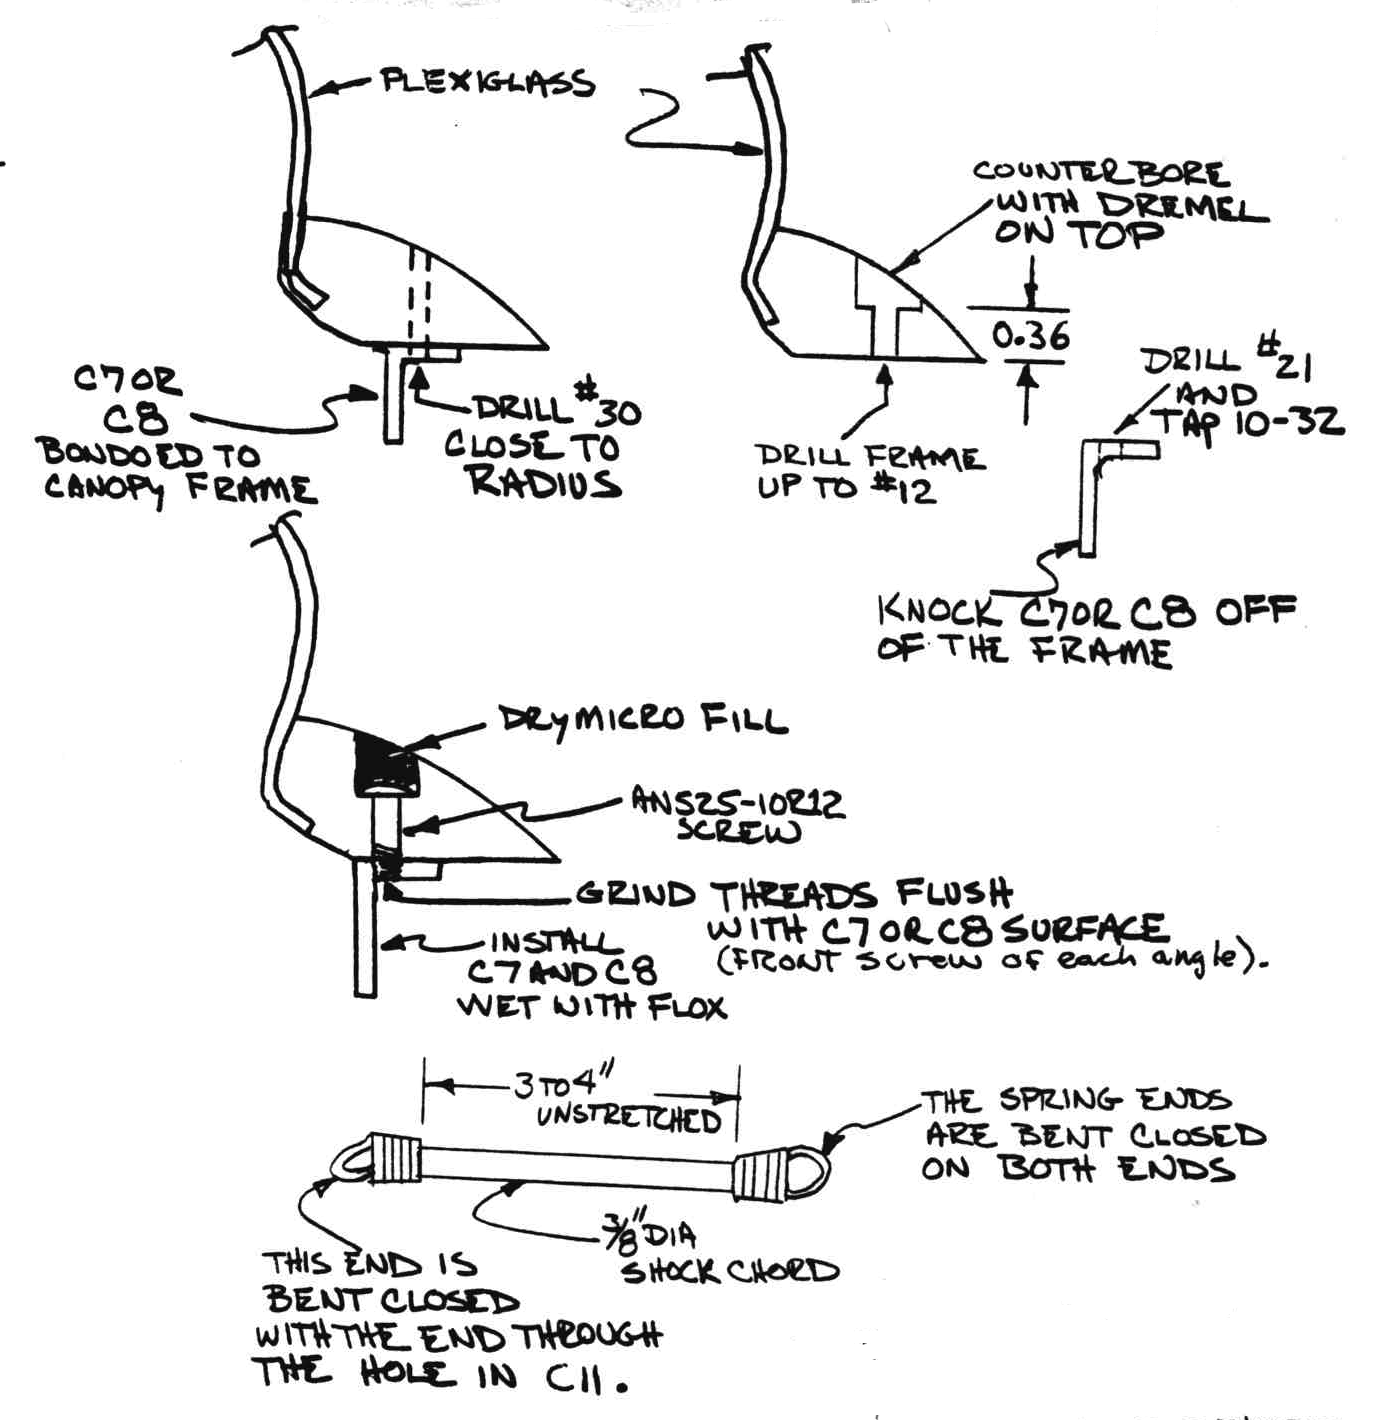 PLEXIGLASS
COUNTERBORE
WITH DREMEL
ON TOP
0.36
C7 OR
C8
BONDOED TO
CANOPY FRAME
DRILL #30
CLOSE TO
RADIUS
DRILL FRAME
UP TO #12
DRILL #21
AND
TAP 10-32
KNOCK C7 OR C8 OFF
OF THE FRAME
DRY MICRO FILL
AN525-10R12
SCREW
GRIND THREADS FLUSH
WITH C7 OR C8 SURFACE
(FRONT screw of each angle).
INSTALL
C7 AND C8
WET WITH FLOX
3 TO 4"
UNSTRETCHED
THE SPRING ENDS
ARE BENT CLOSED
ON BOTH ENDS
3/8" DIA
SHOCK CHORD
THIS END IS
BENT CLOSED
WITH THE END THROUGH
THE HOLE IN C11.